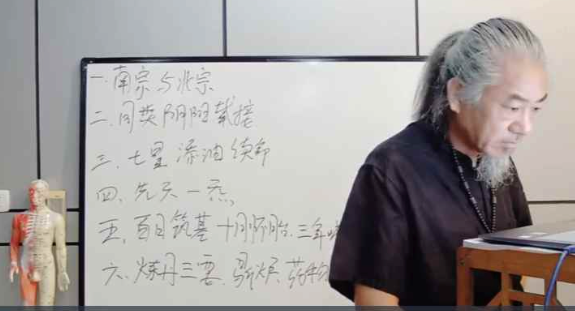 一.南宗与北宗
二.同类阴阳栽接
三.七星添油续命
四.先天一炁
五.百日筑基 十月怀胎.三年
六.炼丹三要.鼎炉.药物